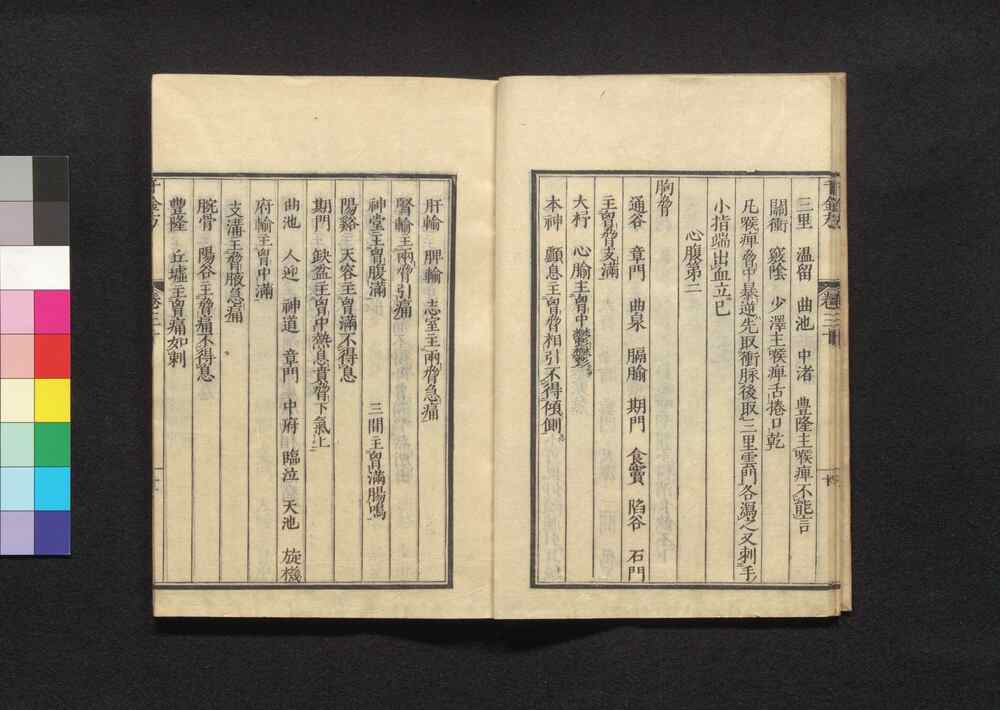 三里　溫留　曲池　中渚　豊隆主喉痺不能言
關衝　竅陰　少澤主喉痺舌捲口乾
凡喉痺脅中暴逆先取衝脉後取三里雲門各瀉之又刺手
小指端出血立已
心腹第二
胸脅
通谷　章門　曲泉　膈腧　期門　食竇　陷谷　石門
主胷脅支滿
大杼　心腧主胷中鬱鬱
本神　顱息主胷脅相引不得傾側
肝腧　脾腧　志室主兩脅急痛
腎腧主兩脅引痛
神堂主胷腹滿　三間主胷滿腸鳴
陽谿　天容主胷滿不得息
期門　缺盆主胷中熱息賁脅下氣上
曲池　人迎　神道　章門　中府　臨泣　天池　旋機
府腧主胷中滿
支溝主脅腋急痛
腕骨　陽谷主脅痛不得息
豐隆　丘墟主胷痛如刺
千金方
卷三十